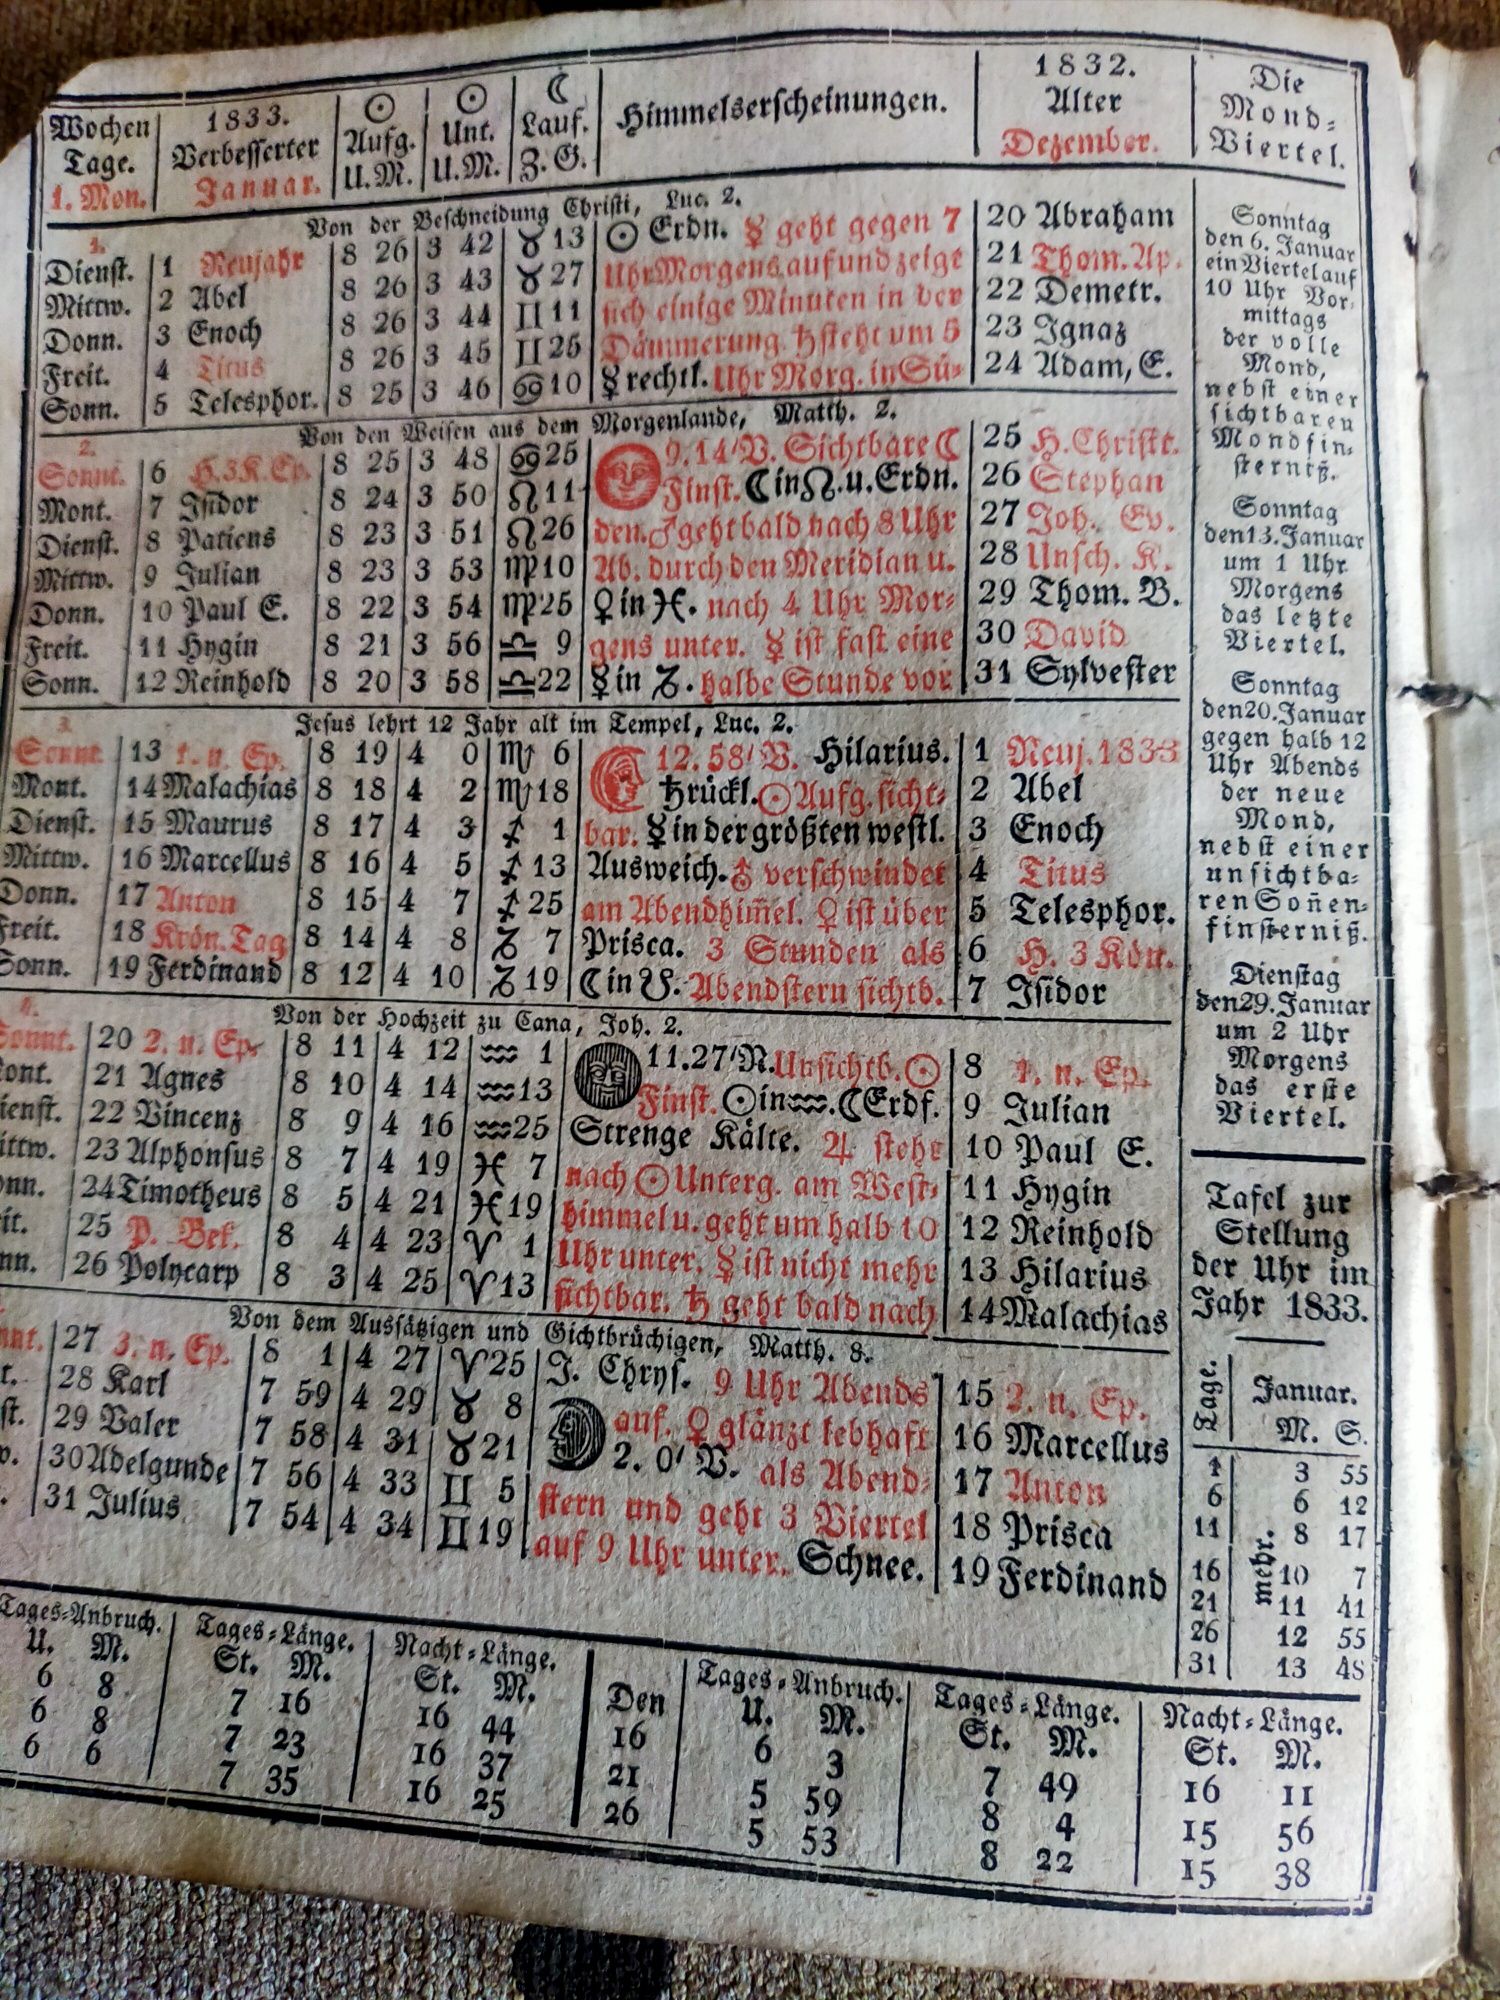 Wochen Tage. 1. Mon. | 1833. Verbesserter Januar. | ☉ Aufg. U.M. | ☉ Unt. U.M. | ☾ Lauf. Z.G. | Himmelserscheinungen. | 1832. Alter Dezember. | Die Mond-Viertel.
Von der Beschneidung Christi, Luc. 2.
1.
Dienst. 1 Neujahr 8 26 3 42 ♉ 13 ☉ Erdn. ☿ geht gegen 7 20 Abraham
Mittw. 2 Abel 8 26 3 43 ♉ 27 Uhr Morgens auf und zeigt 21 Thom. Ap.
Donn. 3 Enoch 8 26 3 44 ♊ 11 sich einige Minuten in der 22 Demetr.
Freit. 4 Titus 8 26 3 45 ♊ 25 Dämmerung. ♄ steht um 5 23 Ignaz
Sonn. 5 Telesphor. 8 25 3 46 ♋ 10 ☿ rechtl. Uhr Morg. in Sü- 24 Adam, E.
Von den Weisen aus dem Morgenlande, Matth. 2.
2.
Sonnt. 6 H. 3 K. Ep. 8 25 3 48 ♋ 25 9. 14′ V. Sichtbare ☾ 25 H. Christt.
Mont. 7 Isidor 8 24 3 50 ♌ 11 Finst. ☾ in ☊. u. Erdn. 26 Stephan
Dienst. 8 Patiens 8 23 3 51 ♌ 26 den. ♂ geht bald nach 8 Uhr 27 Joh. Ev.
Mittw. 9 Julian 8 23 3 53 ♍ 10 Ab. durch den Meridian u. 28 Unsch. K.
Donn. 10 Paul E. 8 22 3 54 ♍ 25 ♀ in ♓. nach 4 Uhr Mor- 29 Thom. B.
Freit. 11 Hygin 8 21 3 56 ♎ 9 gens unter. ☿ ist fast eine 30 David
Sonn. 12 Reinhold 8 20 3 58 ♎ 22 ☿ in ♑. halbe Stunde vor 31 Sylvester
Jesus lehrt 12 Jahr alt im Tempel, Luc. 2.
3.
Sonnt. 13 1. n. Ep. 8 19 4 0 ♏ 6 12. 58′ V. Hilarius. 1 Neuj. 1833
Mont. 14 Malachias 8 18 4 2 ♏ 18 ♄ rückl. ☉ Aufg. sicht- 2 Abel
Dienst. 15 Maurus 8 17 4 3 ♐ 1 bar. ☿ in der größten westl. 3 Enoch
Mittw. 16 Marcellus 8 16 4 5 ♐ 13 Ausweich. ⛢ verschwindet 4 Titus
Donn. 17 Anton 8 15 4 7 ♐ 25 am Abendhim̄el. ♀ ist über 5 Telesphor.
Freit. 18 Krön. Tag 8 14 4 8 ♑ 7 Prisca. 3 Stunden als 6 H. 3 Kön.
Sonn. 19 Ferdinand 8 12 4 10 ♑ 19 ☾ in ☋. Abendstern sichtb. 7 Isidor
Von der Hochzeit zu Cana, Joh. 2.
4.
Sonnt. 20 2. n. Ep. 8 11 4 12 ♒ 1 11. 27′ N. Unsichtb. ☉ 8 1. n. Ep.
ont. 21 Agnes 8 10 4 14 ♒ 13 Finst. ☉ in ♒. ☾ Erdf. 9 Julian
ienst. 22 Vincenz 8 9 4 16 ♒ 25 Strenge Kälte. ♃ steht 10 Paul E.
ittw. 23 Alphonsus 8 7 4 19 ♓ 7 nach ☉ Unterg. am West- 11 Hygin
onn. 24 Timotheus 8 5 4 21 ♓ 19 himmel u. geht um halb 10 12 Reinhold
it. 25 P. Bek. 8 4 4 23 ♈ 1 Uhr unter. ☿ ist nicht mehr 13 Hilarius
nn. 26 Polycarp 8 3 4 25 ♈ 13 sichtbar. ♄ geht bald nach 14 Malachias
Von dem Aussätzigen und Gichtbrüchigen, Matth. 8.
nnt. 27 3. n. Ep. 8 1 4 27 ♈ 25 J. Chrys. 9 Uhr Abends 15 2. n. Ep.
t. 28 Karl 7 59 4 29 ♉ 8 auf. ♀ glänzt lebhaft 16 Marcellus
st. 29 Valer 7 58 4 31 ♉ 21 2. 0′ V. als Abend- 17 Anton
w. 30 Adelgunde 7 56 4 33 ♊ 5 stern und geht 3 Viertel 18 Prisca
. 31 Julius 7 54 4 34 ♊ 19 auf 9 Uhr unter. Schnee. 19 Ferdinand
Sonntag
den 6. Januar
ein Viertel auf
10 Uhr Vor-
mittags
der volle
Mond,
nebst einer
sichtbaren
Mondfin-
sterniß.
Sonntag
den 13. Januar
um 1 Uhr
Morgens
das letzte
Viertel.
Sonntag
den 20. Januar
gegen halb 12
Uhr Abends
der neue
Mond,
nebst einer
unsichtba-
ren Son̄en-
finsterniß.
Dienstag
den 29. Januar
um 2 Uhr
Morgens
das erste
Viertel.
Tafel zur
Stellung
der Uhr im
Jahr 1833.
Tage. | Januar.
M. S.
1 3 55
6 6 12
11 8 17
mehr.
16 10 7
21 11 41
26 12 55
31 13 48
Tages-Anbruch. | Tages-Länge. | Nacht-Länge. | Den | Tages-Anbruch. | Tages-Länge. | Nacht-Länge.
U. M. | St. M. | St. M. | U. M. | St. M. | St. M.
6 8 7 16 16 44 16 6 3 7 49 16 11
6 8 7 23 16 37 21 5 59 8 4 15 56
6 6 7 35 16 25 26 5 53 8 22 15 38